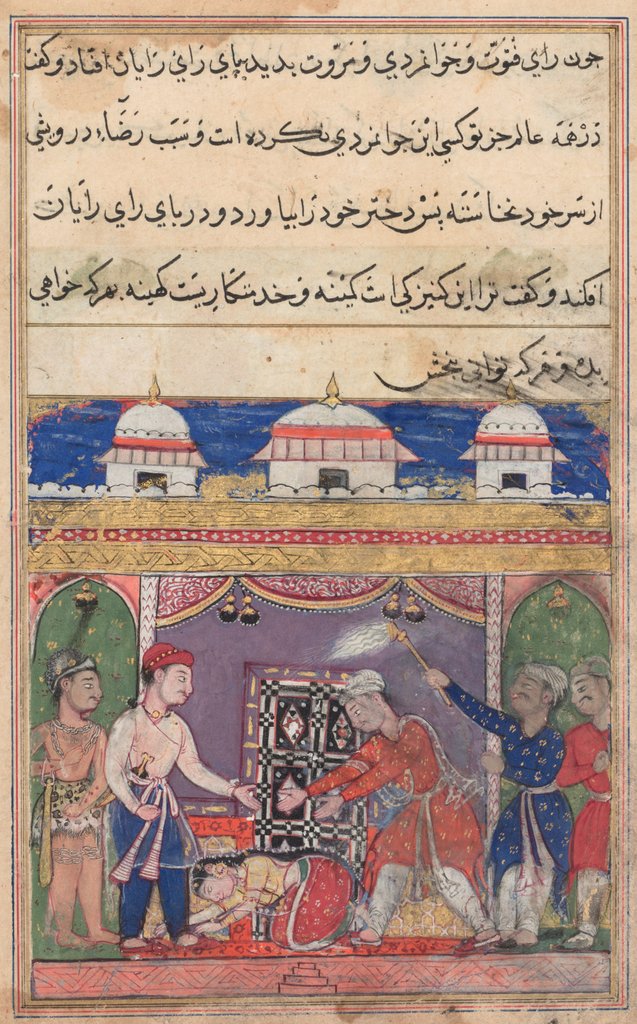 چون رای فتوّت و جوانمردی و مروّت بدید بپای رای رایان افتاد و کفت
در همه عالم جز تو کسی این جوانمردی نکرده است و سبب رضاء درویشی
از سر خود بخاسته پس دختر خود را بیاورد و در پای رای رایان
افکند و کفت ترا این کنیزکی است کمینه و خدمتکاریست کهینه بهرکه خواهی
بده و هرکه توانی ببخش